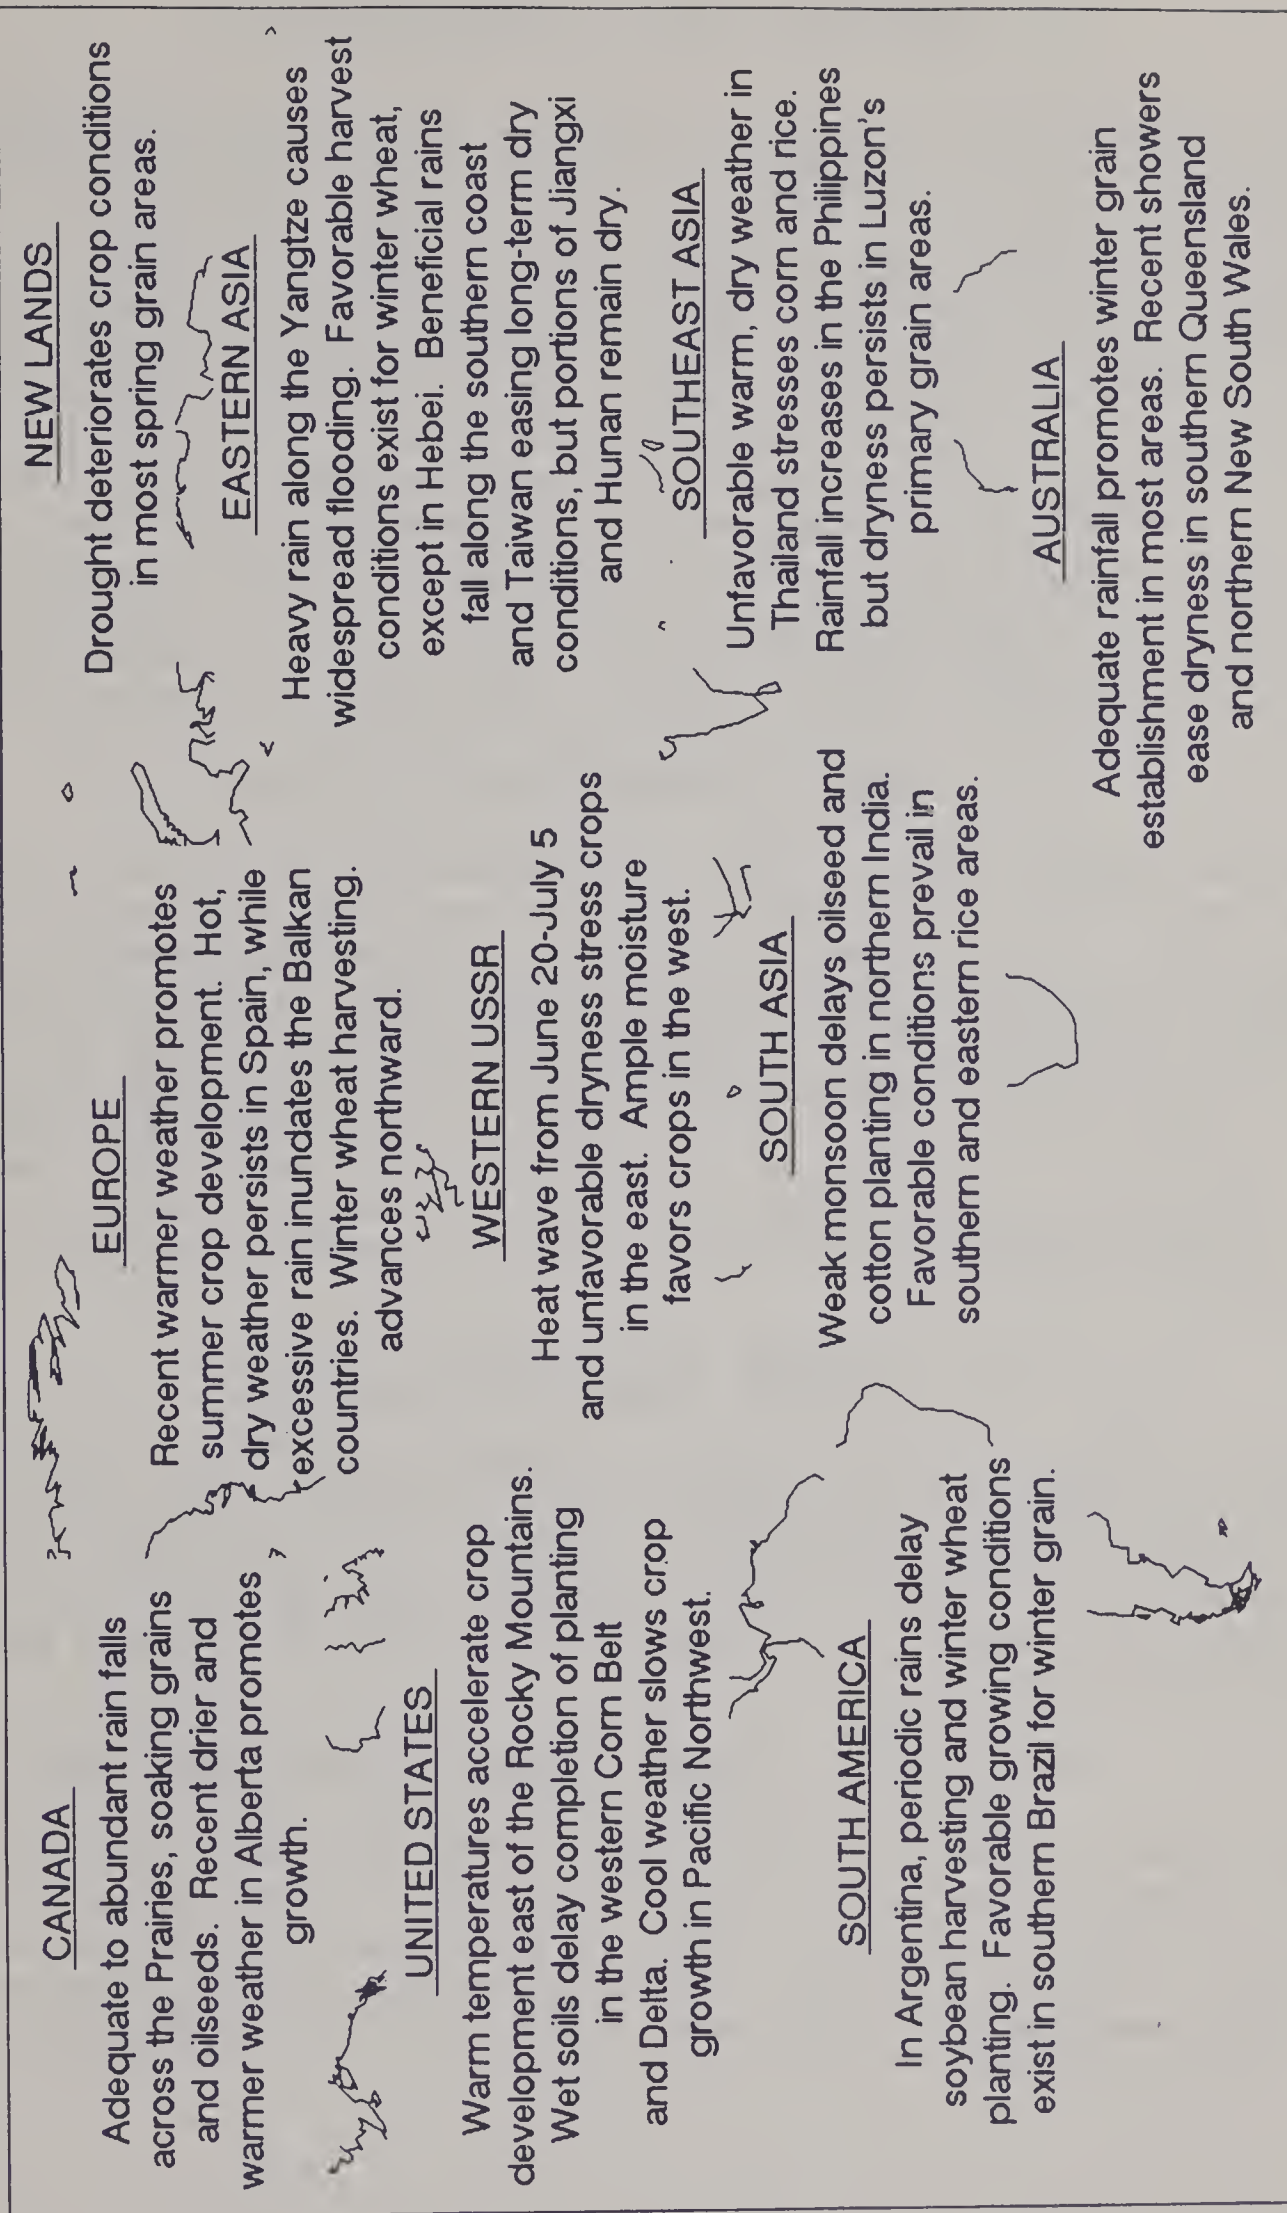 CANADA
Adequate to abundant rain falls
across the Prairies, soaking grains
and oilseeds. Recent drier and
warmer weather in Alberta promotes
growth.
UNITED STATES
Warm temperatures accelerate crop
development east of the Rocky Mountains.
Wet soils delay completion of planting
in the western Corn Belt
and Delta. Cool weather slows crop
growth in Pacific Northwest.
SOUTH AMERICA
In Argentina, periodic rains delay
soybean harvesting and winter wheat
planting. Favorable growing conditions
exist in southern Brazil for winter grain.
EUROPE
Recent warmer weather promotes
summer crop development. Hot,
dry weather persists in Spain, while
excessive rain inundates the Balkan
countries. Winter wheat harvesting.
advances northward.
WESTERN USSR
Heat wave from June 20-July 5
and unfavorable dryness stress crops
in the east. Ample moisture
favors crops in the west.
SOUTH ASIA
Weak monsoon delays oilseed and
cotton planting in northern India.
Favorable conditions prevail in
southern and eastern rice areas.
NEW LANDS
Drought deteriorates crop conditions
in most spring grain areas.
EASTERN ASIA
Heavy rain along the Yangtze causes
widespread flooding. Favorable harvest
conditions exist for winter wheat,
except in Hebei. Beneficial rains
fall along the southern coast
and Taiwan easing long-term dry
conditions, but portions of Jiangxi
and Hunan remain dry.
SOUTHEAST ASIA
Unfavorable warm, dry weather in
Thailand stresses corn and rice.
Rainfall increases in the Philippines
but dryness persists in Luzon's
primary grain areas.
AUSTRALIA
Adequate rainfall promotes winter grain
establishment in most areas. Recent showers
ease dryness in southern Queensland
and northern New South Wales.